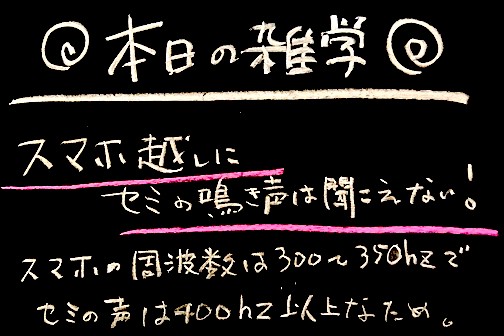 本日の雑学
スマホ越しに
セミの鳴き声は聞こえない!
スマホの周波数は300〜350hzで
セミの声は400hz以上なため。